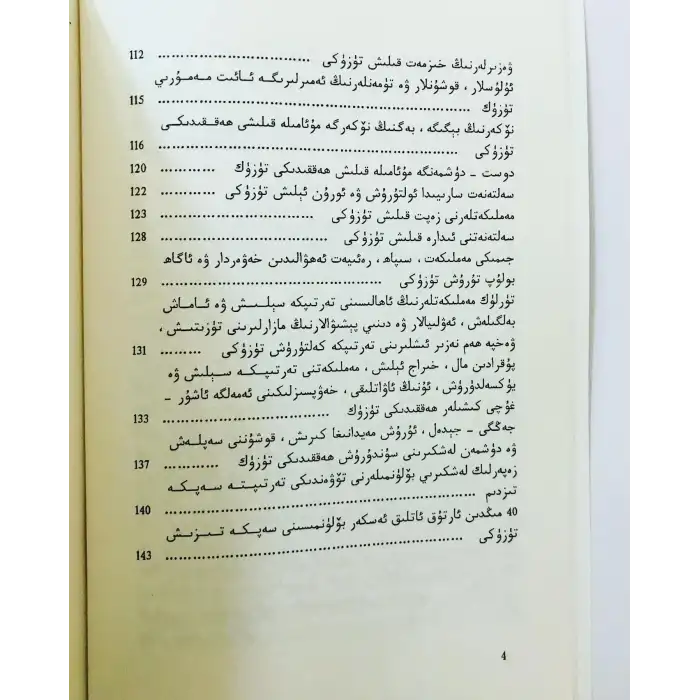 ۋەزىرلەرنىڭ خىزمەت قىلىش تۈزۈكى ........................................ 112
ئۇلۇسلار ، قوشۇنلار ۋە تۈمەنلەرنىڭ ئەمىرلىرىگە ئائىت مەمۇرىي
تۈزۈك ........................................ 115
نۆكەرنىڭ بېگىگە ، بەگنىڭ نۆكەرگە مۇئامىلە قىلىشى ھەققىدىكى
تۈزۈكى ........................................ 116
دوست - دۈشمەنگە مۇئامىلە قىلىش ھەققىدىكى تۈزۈك ............ 120
سەلتەنەت سارىيىدا ئولتۇرۇش ۋە ئورۇن ئېلىش تۈزۈكى ............ 122
مەملىكەتلەرنى زەپت قىلىش تۈزۈكى ........................ 123
سەلتەنەتنى ئىدارە قىلىش تۈزۈكى ........................ 128
جىمىكى مەملىكەت ، سىپاھ ، رەئىيەت ئەھۋالىدىن خەۋەردار ۋە ئاگاھ
بولۇپ تۇرۇش تۈزۈكى ........................................ 129
تۈرلۈك مەملىكەتلەرنىڭ ئاھالىسىنى تەرتىپكە سېلىش ۋە ئاماش
بەلگىلەش ، ئەۋلىيالار ۋە دىنىي پېشىۋالارنىڭ مازارلىرىنى تۈزىتىش ،
ۋەخپە ھەم نەزىر ئىشلىرىنى تەرتىپكە كەلتۈرۈش تۈزۈكى .......... 131
پۇقرادىن مال ، خىراج ئېلىش ، مەملىكەتنى تەرتىپكە سېلىش ۋە
يۈكسەلدۈرۈش ، ئۇنىڭ ئاۋاتلىقى ، خەۋپسىزلىكىنى ئەمەلگە ئاشۇر -
غۇچى كىشىلەر ھەققىدىكى تۈزۈك ............................ 133
جەڭگى - جېدەل ، ئۇرۇش مەيدانىغا كىرىش ، قوشۇننى سەپلەش
ۋە دۈشمەن لەشكىرىنى سۇندۇرۇش ھەققىدىكى تۈزۈك ............ 137
زەپەرلىك لەشكىرىي بۆلۈنمىلەرنى تۆۋەندىكى تەرتىپتە سەپكە
تىزدىم ........................................ 140
40 مىڭدىن ئارتۇق ئاتلىق ئەسكەر بۆلۈنمىسىنى سەپكە تىزىش
تۈزۈكى ........................................ 143
4